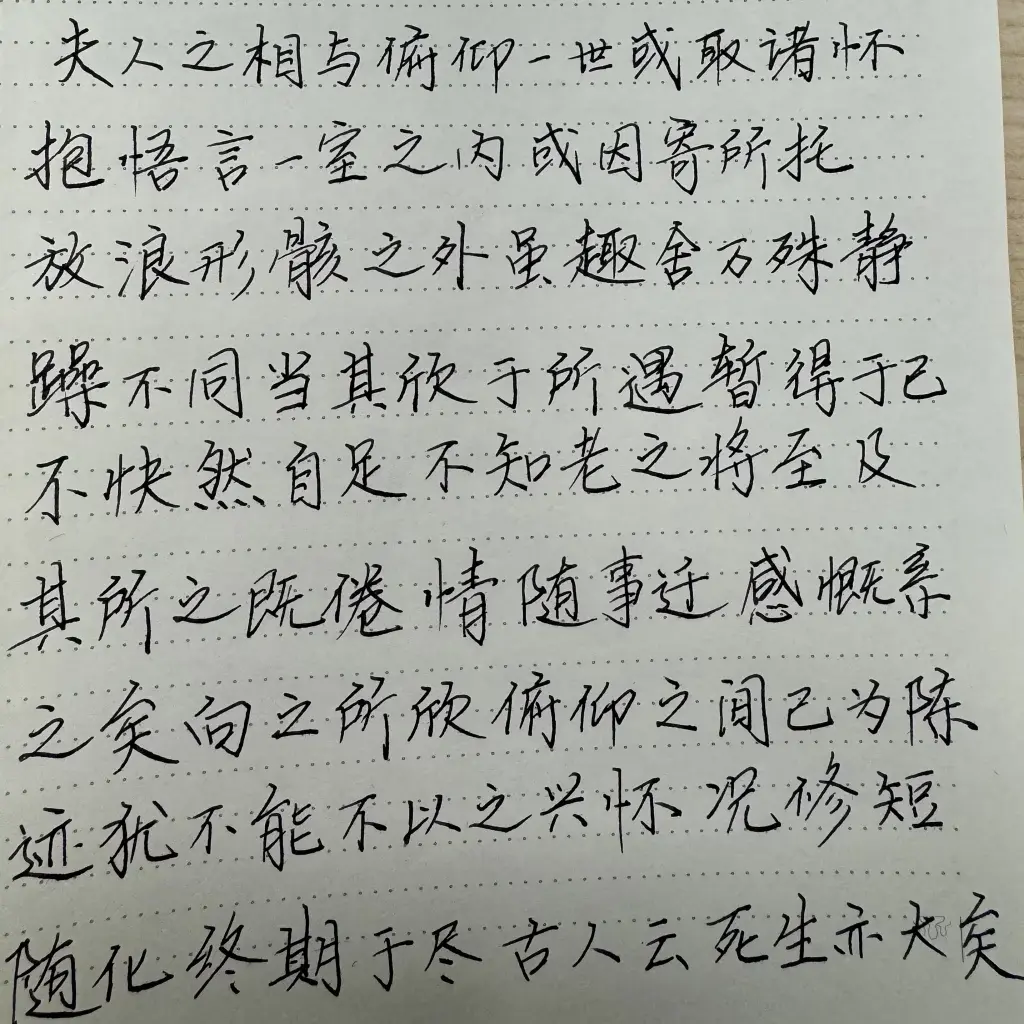 夫人之相与俯仰一世或取诸怀
抱悟言一室之内或因寄所托
放浪形骸之外虽趣舍万殊静
躁不同当其欣于所遇暂得于己
不快然自足不知老之将至及
其所之既倦情随事迁感慨系
之矣向之所欣俯仰之间已为陈
迹犹不能不以之兴怀况修短
随化终期于尽古人云死生亦大矣